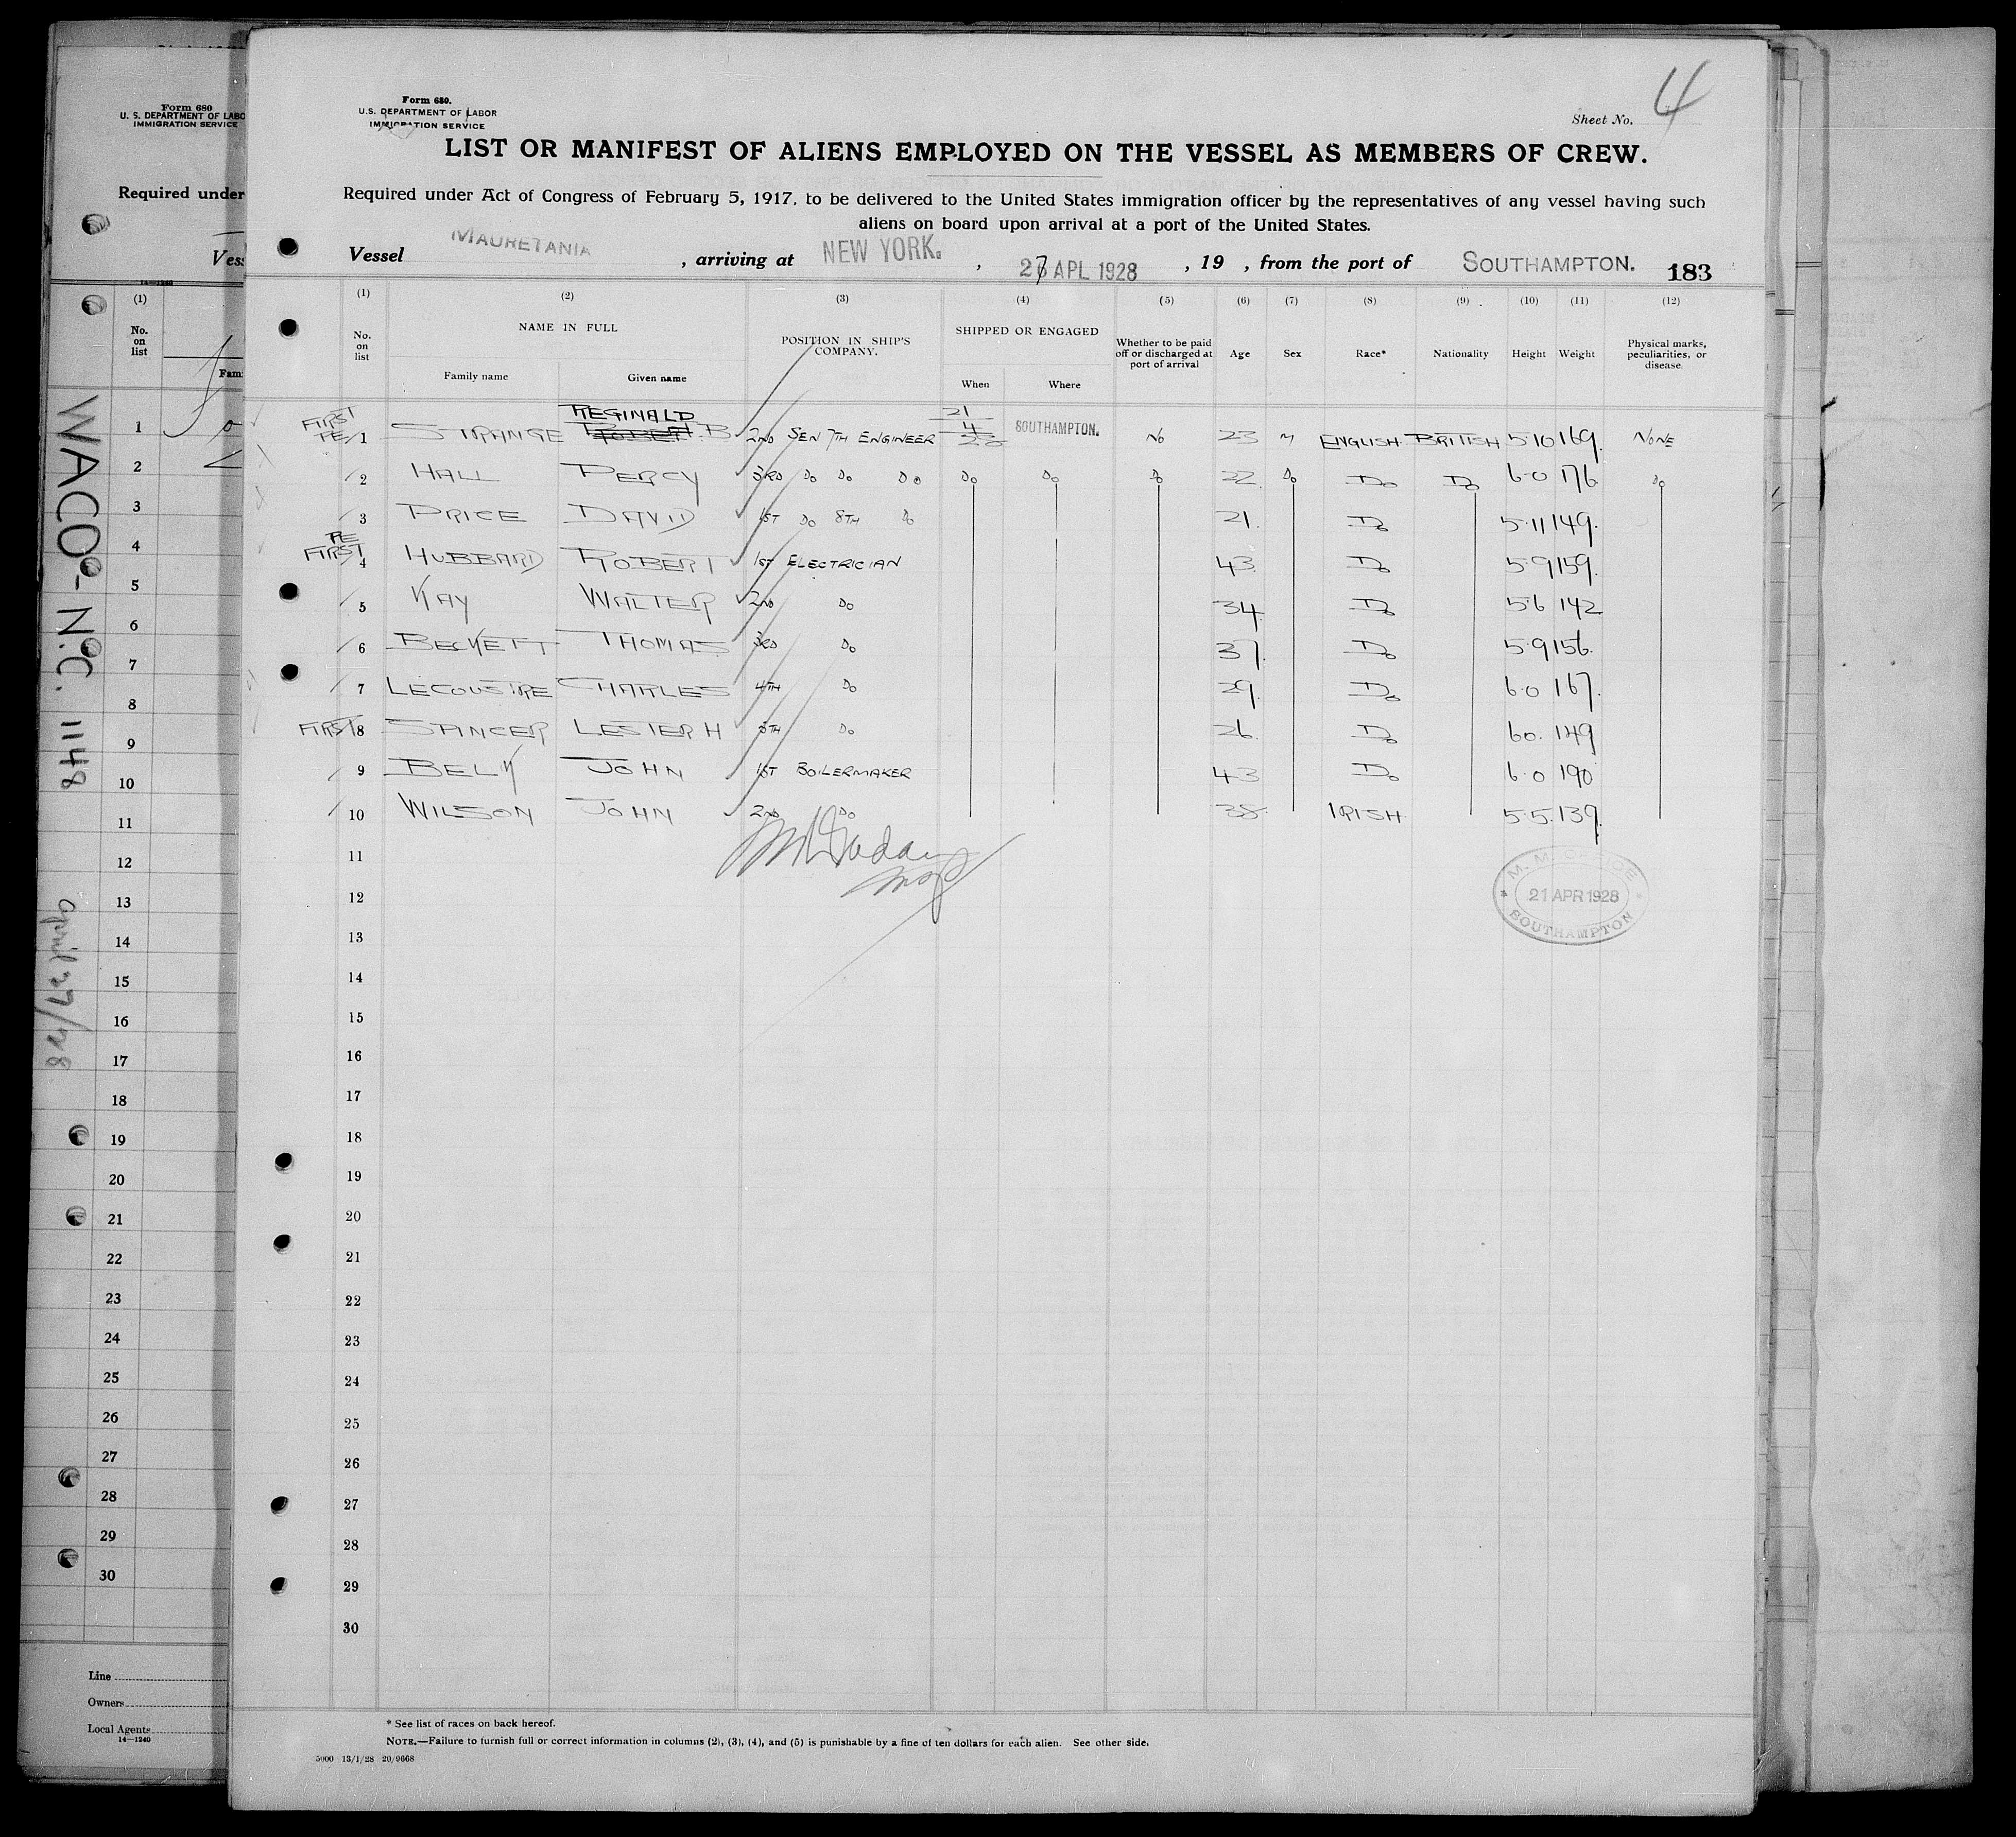 Form 680.
U.S. DEPARTMENT OF LABOR
IMMIGRATION SERVICE
Sheet No. 4
LIST OR MANIFEST OF ALIENS EMPLOYED ON THE VESSEL AS MEMBERS OF CREW.
Required under Act of Congress of February 5, 1917, to be delivered to the United States immigration officer by the representatives of any vessel having such
aliens on board upon arrival at a port of the United States.
Vessel MAURETANIA, arriving at NEW YORK., 27 APL 1928, 19 , from the port of SOUTHAMPTON. 183
(1) (2) (3) (4) (5) (6) (7) (8) (9) (10) (11) (12)
No. on list NAME IN FULL Family name Given name POSITION IN SHIP'S COMPANY. SHIPPED OR ENGAGED When Where Whether to be paid off or discharged at port of arrival Age Sex Race* Nationality Height Weight Physical marks, peculiarities, or disease.
REGINALD 21
FIRST RE 1 STRANGE ROBERT B 2ND SEN 7TH ENGINEER 4 28 SOUTHAMPTON. NO 23 M ENGLISH BRITISH 5·10 169. NONE
2 HALL PERCY 3RD DO DO DO DO DO DO 22 DO DO DO 6·0 176 DO
3 PRICE DAVID 1ST DO 8TH DO 21. DO 5·11 149.
RE FIRST 4 HUBBARD ROBERT 1ST ELECTRICIAN 43 DO 5·9 159.
5 KAY WALTER 2ND DO 34 DO 5·6 142
6 BECKETT THOMAS 3RD DO 37. DO 5·9 156.
7 LECOUSTRE CHARLES 4TH DO 29. DO 6·0 167.
FIRST 8 SPANCER LESTER H 5TH DO 26. DO 60. 149
9 BELL JOHN 1ST BOILERMAKER 43 DO 6·0 190
10 WILSON JOHN 2ND DO 38. IRISH 5·5. 139.
11
12
13
14
15
16
17
18
19
20
21
22
23
24
25
26
27
28
29
30
21 APR 1928
SOUTHAMPTON
* See list of races on back hereof.
NOTE.—Failure to furnish full or correct information in columns (2), (3), (4), and (5) is punishable by a fine of ten dollars for each alien. See other side.
5000 13/1/28 20/9668
Form 680
U. S. DEPARTMENT OF LABO
IMMIGRATION SERVICE
Required under
Vess
14—1240
(1)
No. on list
Fam
1
2
3
4
5
6
7
8
9
10
11
12
13
14
15
16
17
18
19
20
21
22
23
24
25
26
27
28
29
30
Line
Owners
Local Agents
14—1240
WACO - N.C. 1148
April 27/28